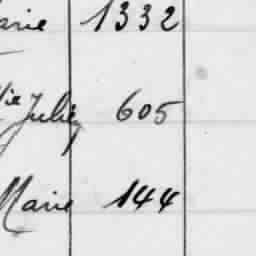 arie 1332
Vie Julie 605
Marie 144